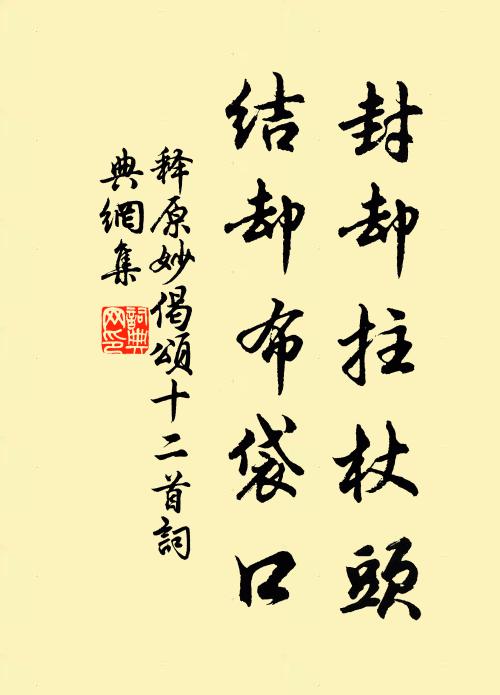 封却拄杖頭
结却布袋口
释原妙偈頌十二首詞
典網集
詞典网印